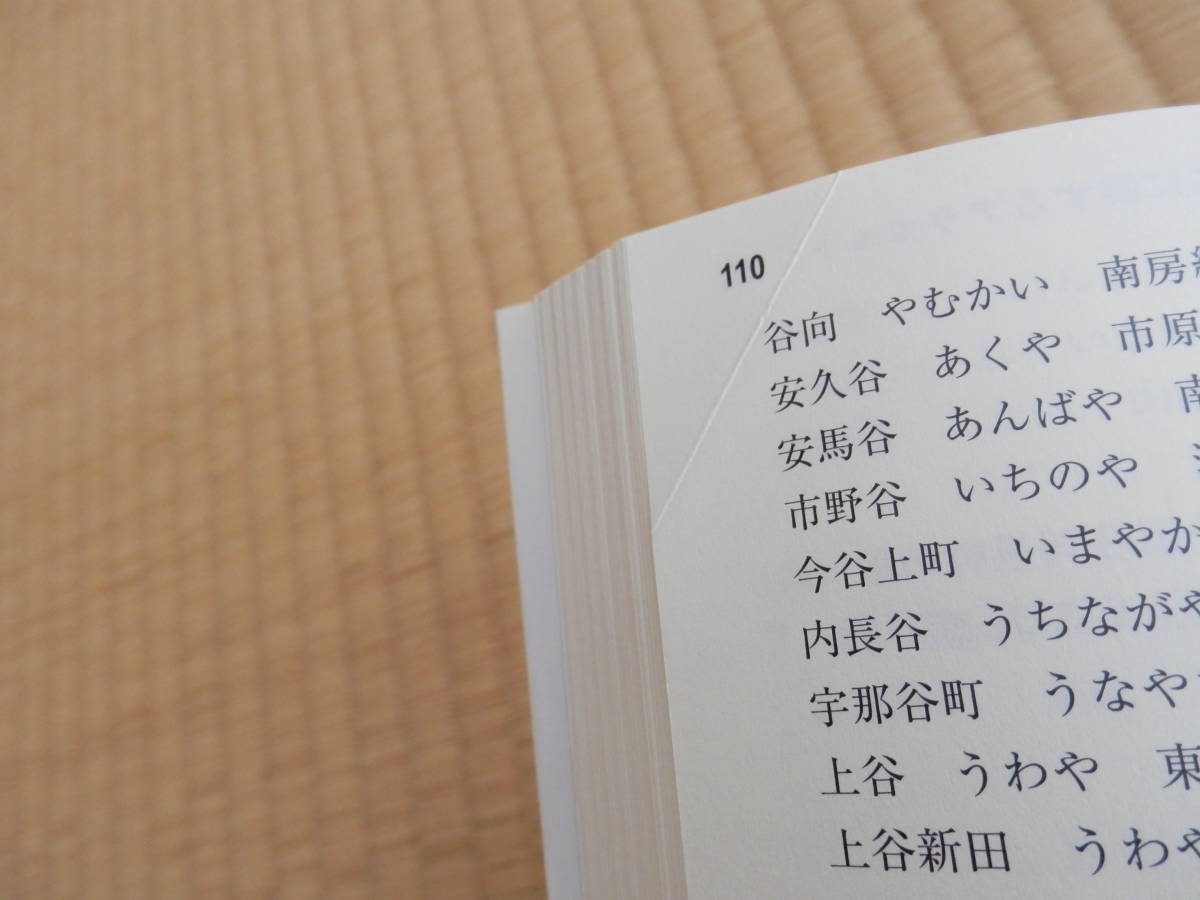 110
谷向 やむかい 南房総
安久谷 あくや 市原
安馬谷 あんばや 南
市野谷 いちのや
今谷上町 いまやか
内長谷 うちながや
宇那谷町 うなや
上谷 うわや 東
上谷新田 うわや